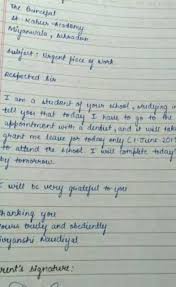 The Principal
St Kabeer Academy
Miyanwala, Dehradun
Subject: Urgent piece of work
Respected Sir
I am a student of your school, studying in
tell you that today I have to go to the
appointment with a dentist, and it will take
grant me leave for today only (1 June 201
to attend the school. I will complete today
by tomorrow.
I will be very grateful to you
Thanking you
Yours truely and obediently
Naudiyal
rent's signature: